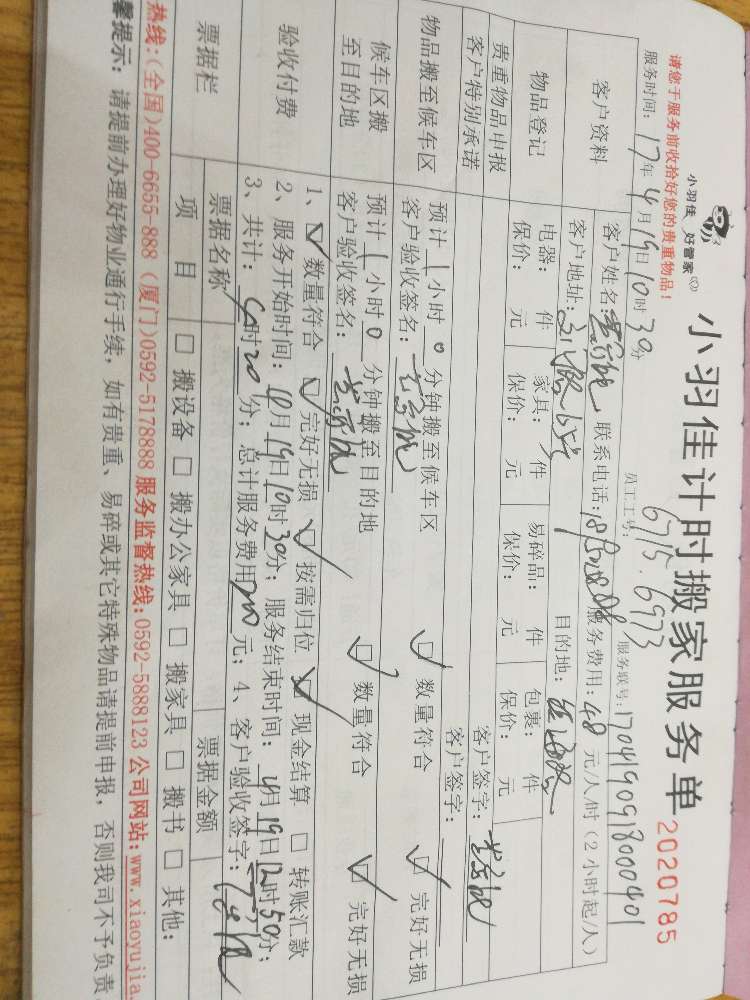 请您于服务前收拾好您的贵重物品！
小羽佳 好管家
小羽佳计时搬家服务单
2020785
服务时间：17年4月19日10时30分
员工工号：6715.6973
服务账号：1704190918000401
客户资料
客户姓名： 联系电话： 服务费用：48元/人/时（2小时起/人）
客户地址： 目的地：
物品登记
电器： 件 家具： 件 易碎品： 件 包裹： 件
保价： 元 保价： 元 保价： 元 保价： 元
贵重物品申报
客户特别承诺
客户签字：
客户签字：
物品搬至候车区
预计1小时0分钟搬至候车区 ☑ 数量符合 ☑ 完好无损
客户验收签名：
候车区搬至目的地
预计1小时0分钟搬至目的地 ☑ 数量符合 ☑ 完好无损
客户验收签名：
验收付费
1、☑ 数量符合 ☑ 完好无损 ☑ 按需归位 ☑ 现金结算 □ 转账汇款
2、服务开始时间：4月19日10时30分；服务结束时间：4月19日12时50分；
3、共计： 时20分；总计服务费用200元；4、客户验收签字：
票据栏
票据名称 票据金额
项目 □ 搬设备 □ 搬办公家具 □ 搬家具 □ 搬书 □ 其他：
热线：(全国)400-6655-888 (厦门)0592-5178888 服务监督热线：0592-5888123 公司网站：www.xiaoyujia.
馨提示：请提前办理好物业通行手续，如有贵重、易碎或其它特殊物品请提前申报，否则我司不予负责